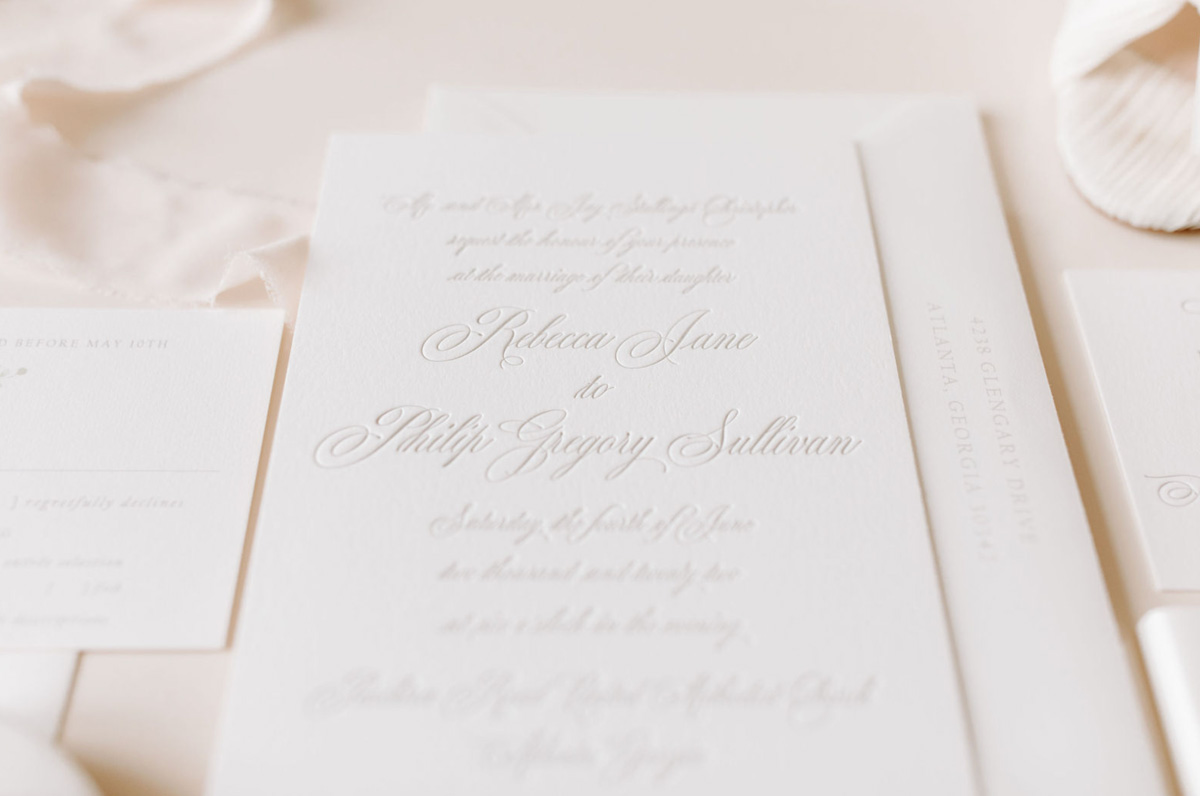 Mr. and Mrs. Jay Stallings Christopher
request the honour of your presence
at the marriage of their daughter
Rebecca Jane
to
Philip Gregory Sullivan
Saturday, the fourth of June
two thousand and twenty two
at six o'clock in the evening
Road United Methodist Church
Atlanta, Georgia
D BEFORE MAY 10TH
] regretfully declines
4238 GLENGARY DRIVE
ATLANTA, GEORGIA 30342